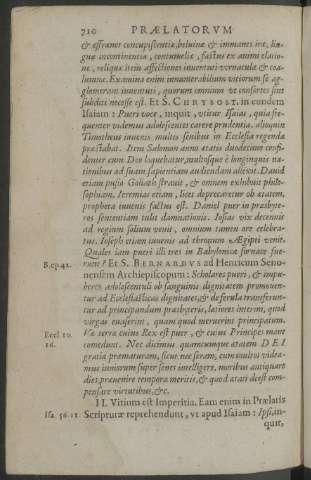 710 PRÆLATORVM
& effrænes concupiscentiæ, beluinæ & immanes iræ, lin-
guæ incontinentia, contumeliæ, fastus ex animi elatio-
ne, reliquæ item affectiones iuuentuti vernaculæ & coa-
lumnæ. Ex animo enim innumerabilium vitiorum se ag-
glomerant iuuentuti, quorum omnium vt consortes sint
subditi necesse est. Et S. CHRYSOST. in eundem
Isaiam: Pueri vocor, inquit, vtitur Isaias, quia fre-
quenter videmus adolescentes carere prudentia. alioquin
Timotheus iuuenis multis senibus in Ecclesia regenda
præstabat. Item Salomon anno ætatis duodecimo confi-
denter cum Deo loquebatur, multosque è longinquis na-
tionibus ad suam sapientiam audiendam allexit. Dauid
etiam pusio Goliath strauit, & omnem exhibuit philo-
sophiam. Ieremias etiam, licet deprecaretur ob ætatem,
propheta iuuenis factus est. Daniel puer in presbyte-
ros sententiam tulit damnationis. Iosias vix decennis
ad regium solium venit, omnium tamen ore celebra-
tus. Ioseph etiam iuuenis ad thronum Ægypti venit.
Quales iam pueri illi tres in Babylonica fornace fue-
B. ep. 42. runt? Et S. BERNARDVS ad Henricum Seno-
nensem Archiepiscopum: Scholares pueri, & impu-
beres adolescentuli ob sanguinis dignitatem promouen-
tur ad Ecclesiasticas dignitates, & de ferula transferun-
tur ad principandum presbyteris, lætiores interim, quod
virgas euaserint, quam quod meruerint principatum.
Eccl. 10. Væ terræ cuius Rex est puer, & cuius Principes mane
16. comedunt. Nec dicimus quamcumque ætatem DEI
gratia præmaturam, sicut nec seram, cum multos videa-
mus iuniorum super senes intelligere, moribus antiquare
dies, præuenire tempora meritis, & quod ætati deest com-
pensare virtutibus. &c.
II. Vitium est Imperitia. Eam enim in Prælatis
Isa. 56. 11. Scripturæ reprehendunt, vt apud Isaiam: Ipsi, in-
quit,